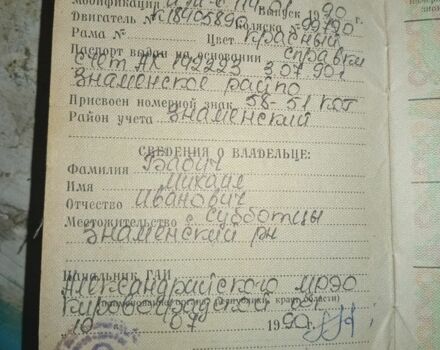 Модификация ИЖ-6 Выпуск 1990 г.
Двигатель № К1840589 Коляска №
Рама № Цвет красный
Паспорт выдан на основании справки
счет АК 3.07.90г
Знаменское райпо
Присвоен номерной знак 58-51 КОТ
Район учета Знаменский
СВЕДЕНИЯ О ВЛАДЕЛЬЦЕ:
Фамилия Бабич
Имя Михаил
Отчество Иванович
Местожительство с Субботцы
Знаменский рн
Начальник ГАИ
Александрийского МРЭО
Кировоградской
(наименование органа республики, края, области)
10 07 1990